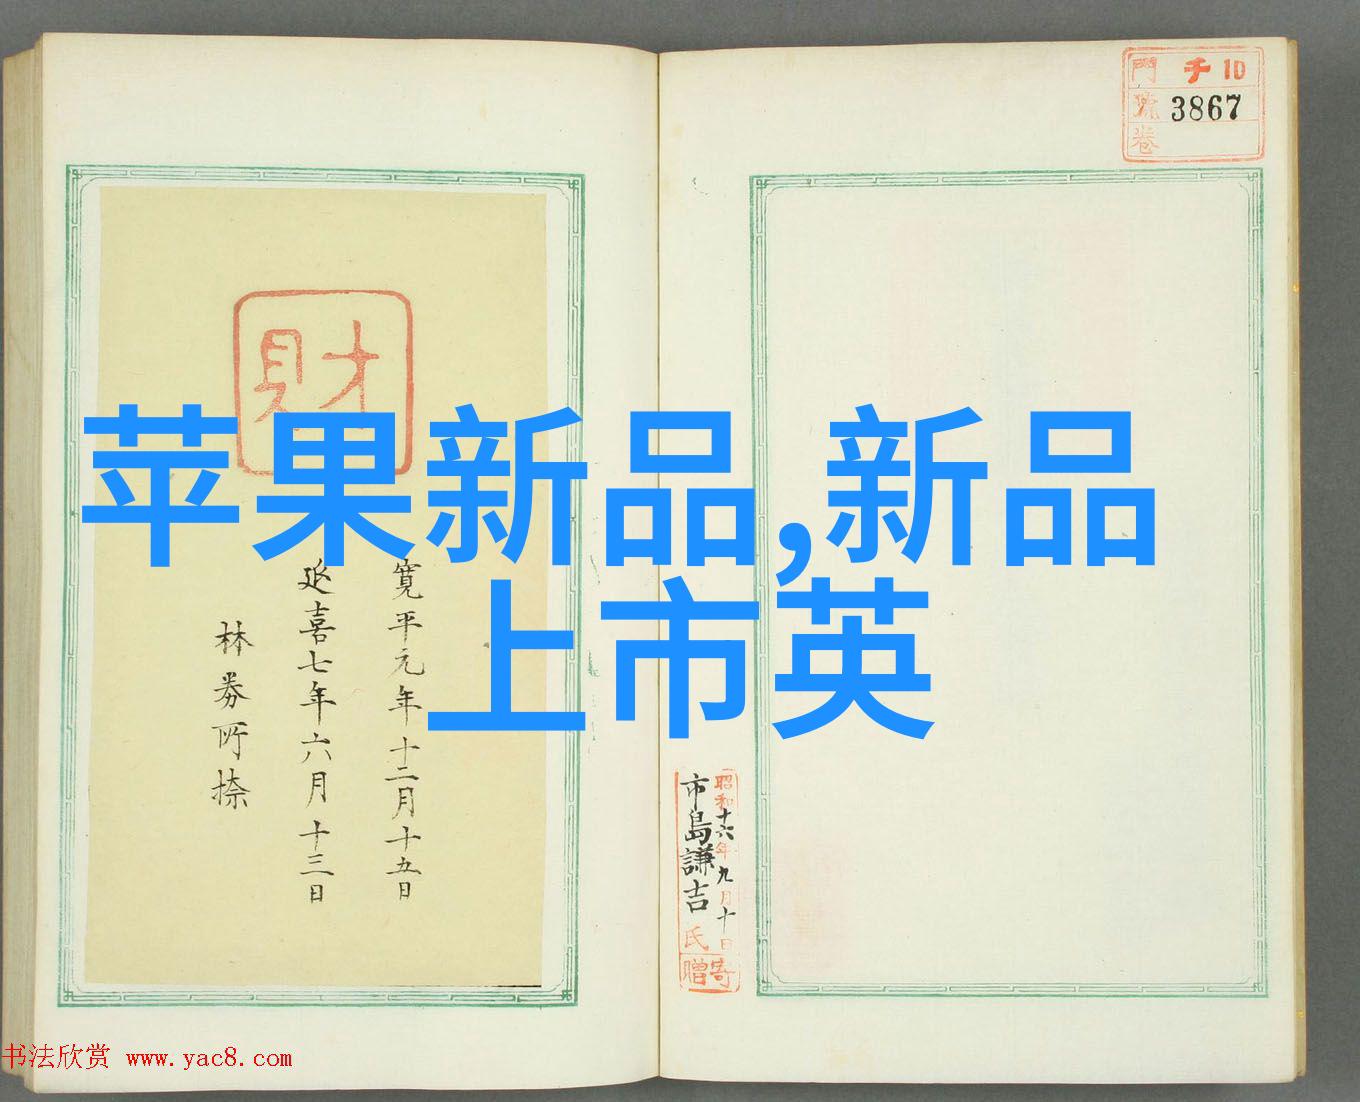 門 千 10
號 3867
卷
財
苹果新品,新品
上市英
寛平元年十二月十五日
延喜七年六月十三日
林券所捺
昭和十六年九月十日
市島謙吉氏
寄贈
书法欣赏 www.yac8.com